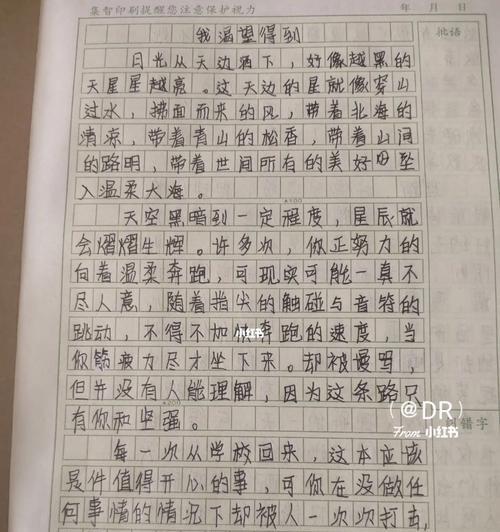 集智印刷提醒您注意保护视力
年 月 日
批语
我渴望得到
日光从天边洒下，好像越黑的
天星星越亮。这天边的星就像穿山
过水，拂面而来的风，带着北海的
清凉，带着青山的松香，带着山间
的路明，带着世间所有的美好坠
入温柔大海。
天空黑暗到一定程度，星辰就
会熠熠生辉。许多次，你正努力的
向着温柔奔跑，可现实可能一真不
尽人意，随着指尖的触碰与音符的
跳动，不得不加快奔跑的速度，当
你筋疲力尽才坐下来。却被谩骂，
但并没有人能理解，因为这条路只
有你和坚强。
每一次从学校回来，这本应该
是件值得开心的事，可你在没做任
何事情的情况下却被人一次次打击
▲100
▲200
小红书
(@DR)
From 小红书
错字